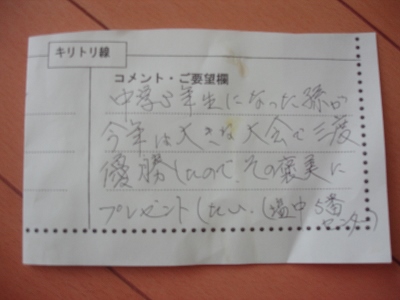 キリトリ線
コメント・ご要望欄
中学3年生になった孫が
今年は大きな大会で三度
優勝したので、その褒美に
プレゼントしたい。(塩中5番
センター)